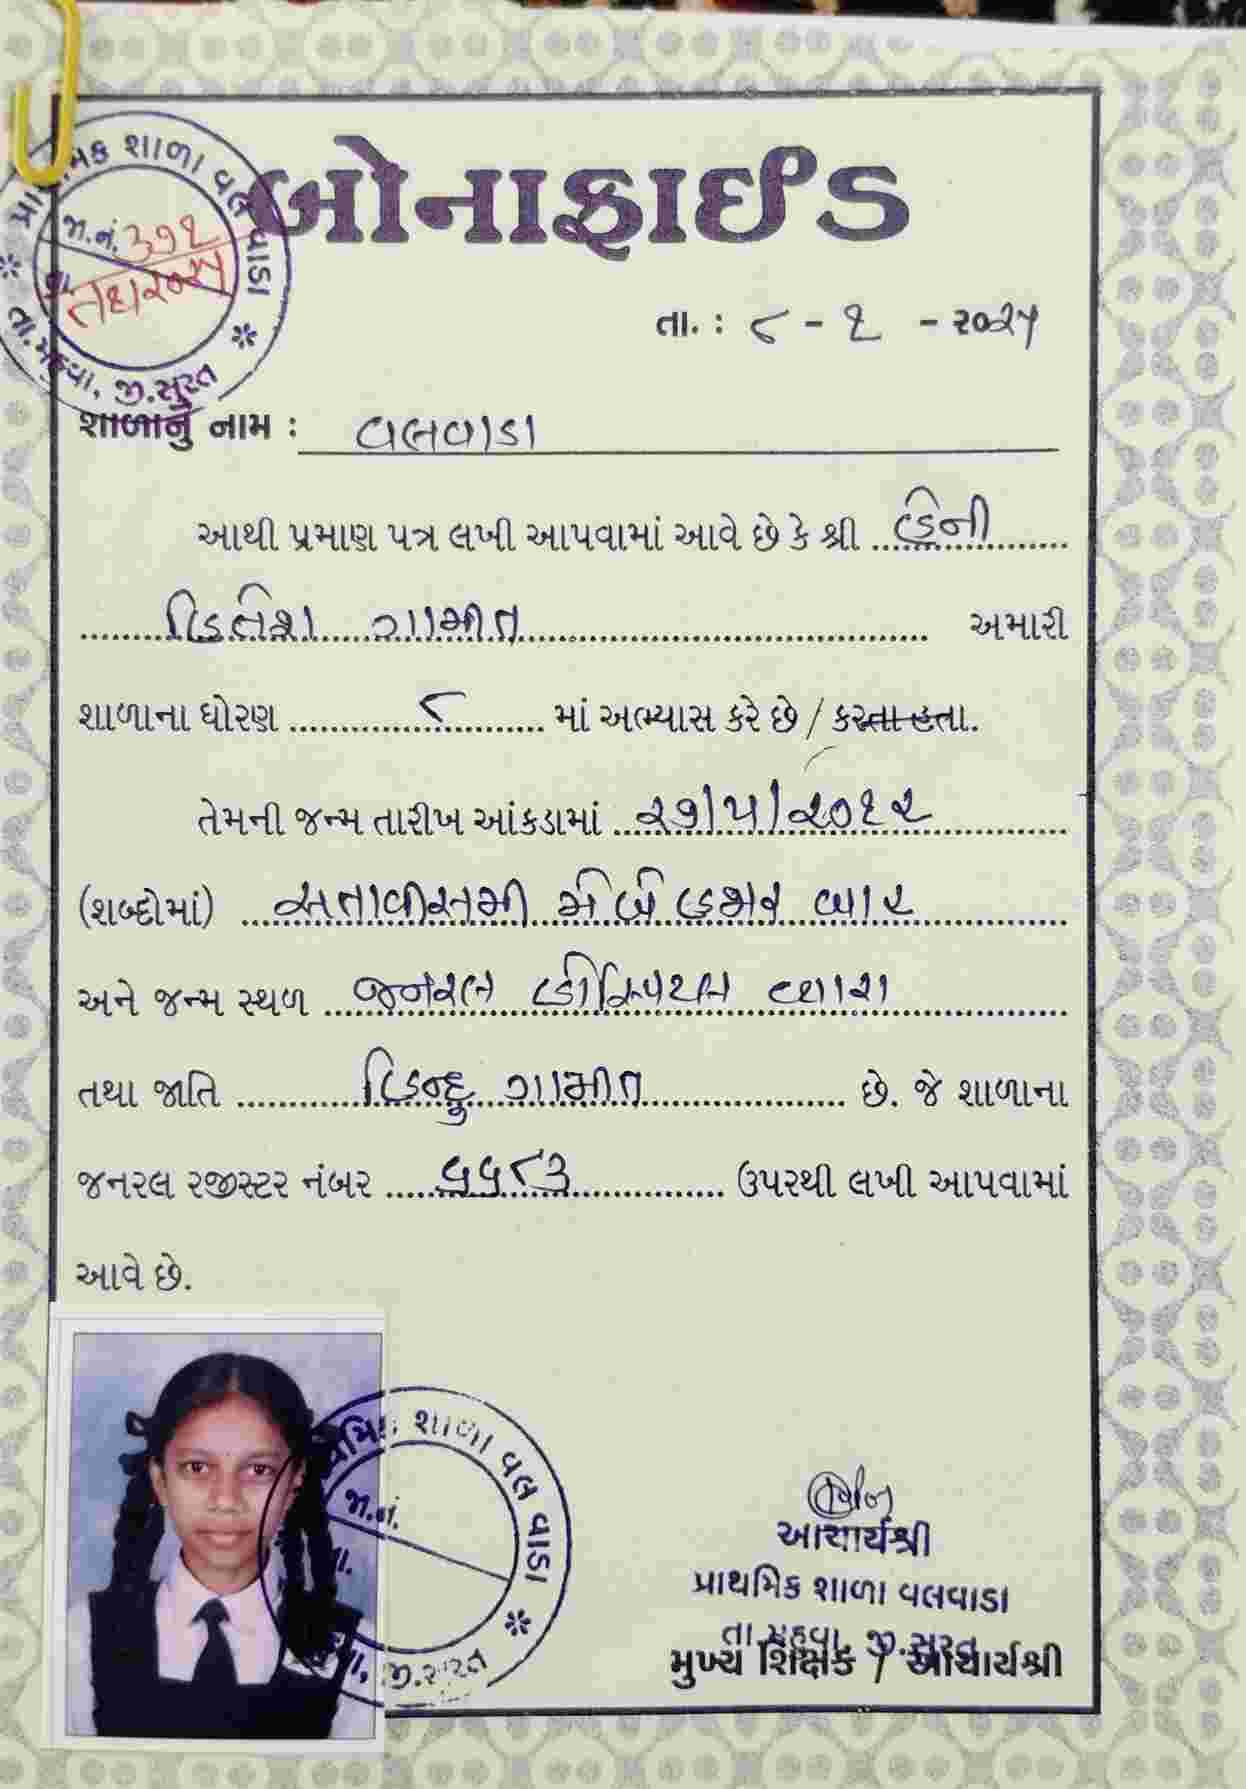 પ્રાથમિક શાળા વલવાડા
જા.નં. ૩૭૧
તા. મહુવા, જી.સુરત
બોનાફાઈડ
તા. : ૮ - ૧ - ૨૦૨૫
શાળાનું નામ : વલવાડા
આથી પ્રમાણ પત્ર લખી આપવામાં આવે છે કે શ્રી હેની
હિતેશ ગામીત અમારી
શાળાના ધોરણ ૮ માં અભ્યાસ કરે છે / કરતા હતા.
તેમની જન્મ તારીખ આંકડામાં ૨૭/૫/૨૦૧૨
(શબ્દોમાં) સતાવીસમી મે બે હજાર બાર
અને જન્મ સ્થળ જનરલ હોસ્પિટલ વ્યારા
તથા જાતિ હિન્દુ ગામીત છે. જે શાળાના
જનરલ રજીસ્ટર નંબર ૫૫૮૩ ઉપરથી લખી આપવામાં
આવે છે.
શાળા વલવાડા
જા.નં.
તા.
જી.સુરત
આચાર્યશ્રી
પ્રાથમિક શાળા વલવાડા
તા.મહુવા, જી.સુરત
મુખ્ય શિક્ષક / આચાર્યશ્રી